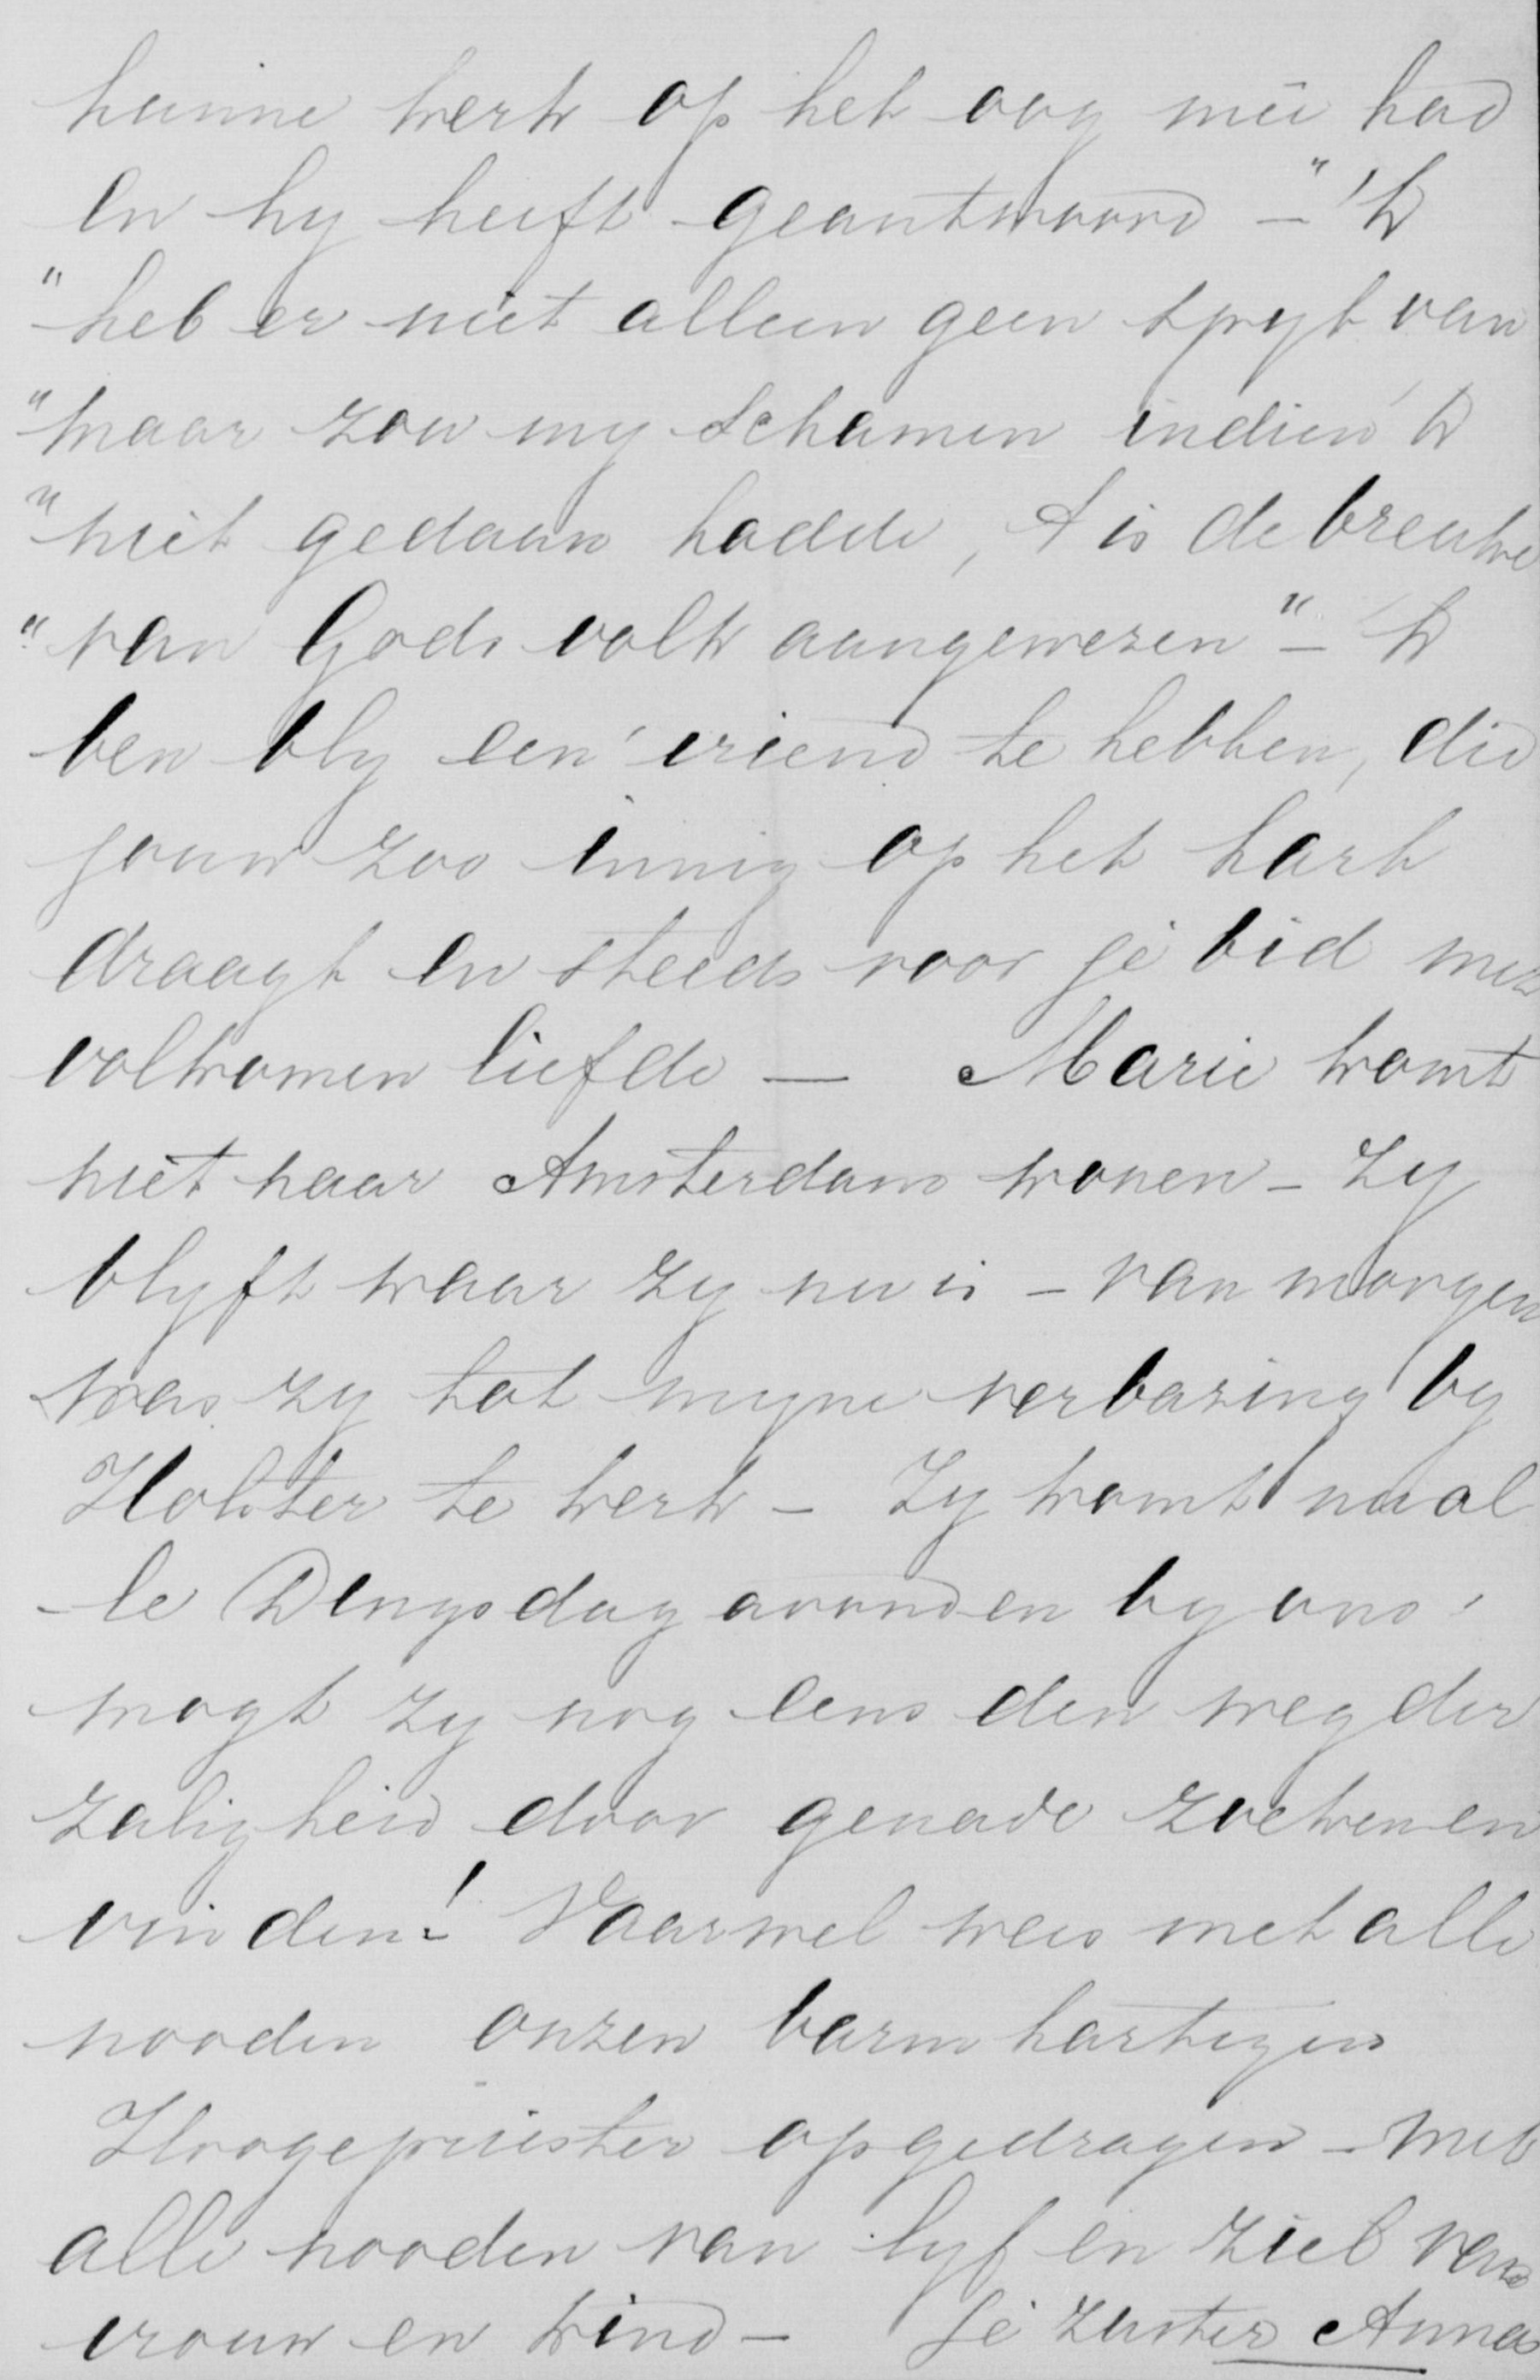 hunne kerk op het oog meê had
en hy heeft geantwoord - " 'k
" heb er niet alleen geen spyt van
" maar zou my schamen indien 'k
" niet gedaan hadde, 't is de breuke
" van Gods volk aangewezen " - 'k
ben bly een' vriend te hebben, die
jouw zoo innig op het hart
draagt en steeds voor je bid met
volkomen liefde - Marie komt
niet naar Amsterdam wonen - Zy
blyft waar zy nu is - van morgen
was zy tot myne verbazing by
Holster te kerk - Zy komt nu al
-le Dingsdag avonden by ons,
mogt zy nog eens den weg der
zaligheid door genade zoeken en
vinden! Vaarwel wees met alle
nooden onzen barmhartigen
Hoogepriester opgedragen - met
alle nooden van lyf en ziel van
vrouw en kind - Je zuster Anna